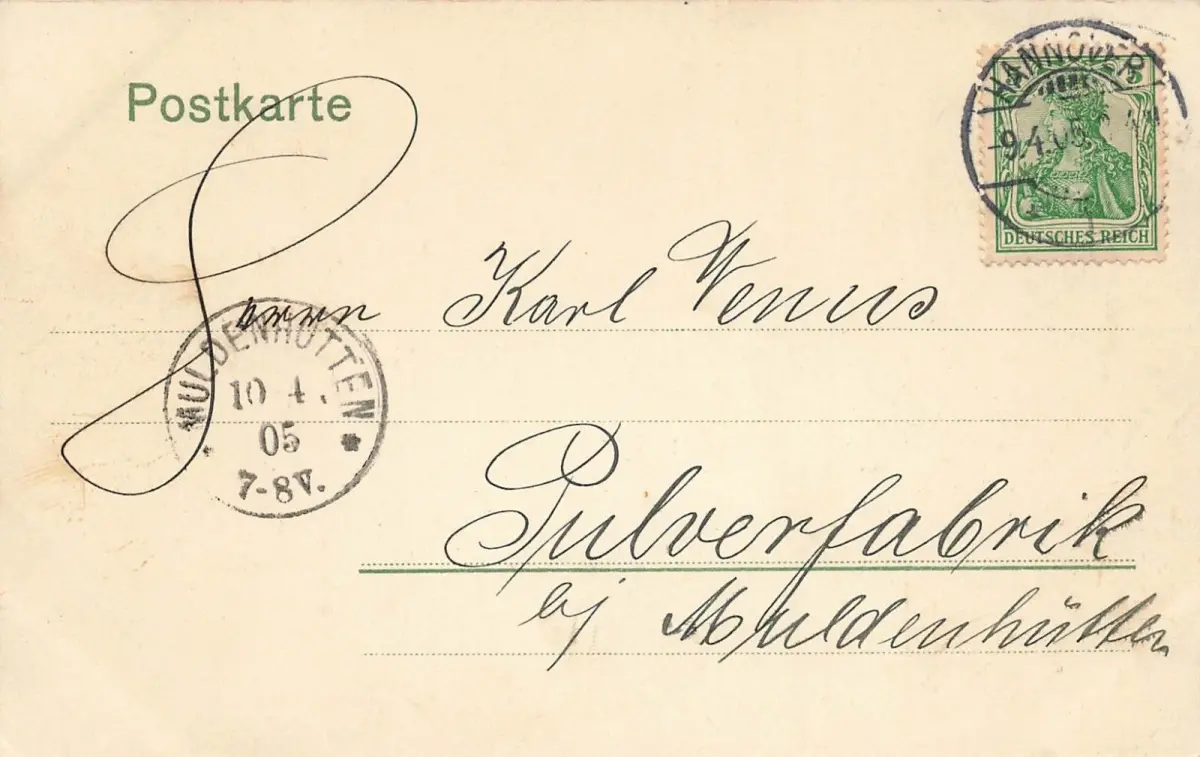 Postkarte
HANNOVER
5
-9.4.05.
DEUTSCHES REICH
Herrn Karl Venus
MULDENHÜTTEN
10 4.
05
7-8V.
Pulverfabrik
bj Muldenhütten